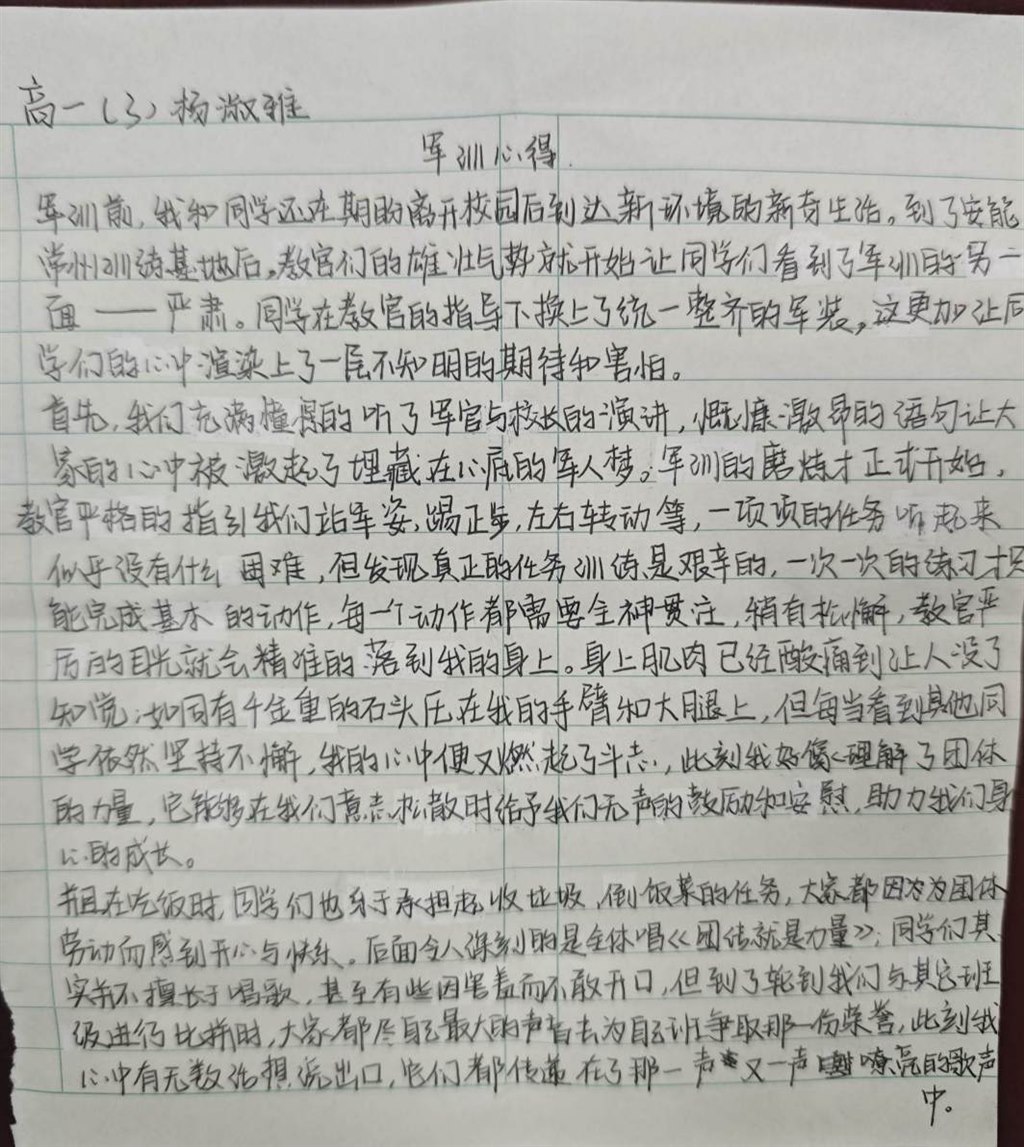 高一(3)杨淑雅
军训心得.
军训前,我和同学还在期盼离开校园后到达新环境的新奇生活。到了安能
常州训练基地后,教官们的雄壮气势就开始让同学们看到了军训的另一
面——严肃。同学在教官的指导下换上了统一整齐的军装,这更加让同
学们的心中渲染上了一层不知明的期待和害怕。
首先,我们充满憧憬的听了军官与校长的演讲,慨慷激昂的语句让大
家的心中被激起了埋藏在心底的军人梦。军训的磨炼才正式开始,
教官严格的指引我们站军姿,踢正步,左右转动等,一项项的任务听起来
似乎没有什么困难,但发现真正的任务训练是艰辛的,一次一次的练习才只
能完成基本的动作,每一个动作都需要全神贯注,稍有松懈,教官严
厉的目光就会精准的落到我的身上。身上肌肉已经酸痛到让人没了
知觉;如同有千金重的石头压在我的手臂和大腿上,但每当看到其他同
学依然坚持不懈,我的心中便又燃起了斗志,此刻我好像理解了团体
的力量,它能够在我们意志松散时给予我们无声的鼓励和安慰,助力我们身
心的成长。
并且在吃饭时,同学们也乐于承担起收垃圾,倒饭菜的任务,大家都因为为团体
劳动而感到开心与快乐。后面令人深刻的是全体唱《团结就是力量》;同学们其
实并不擅长于唱歌,甚至有些因害羞而不敢开口,但到了轮到我们与其它班
级进行比拼时,大家都尽自己最大的声音去为自己班争取那一份荣誉,此刻我
心中有无数话想说出口,它们都传递在了那一声又一声嘹亮的歌声
中。